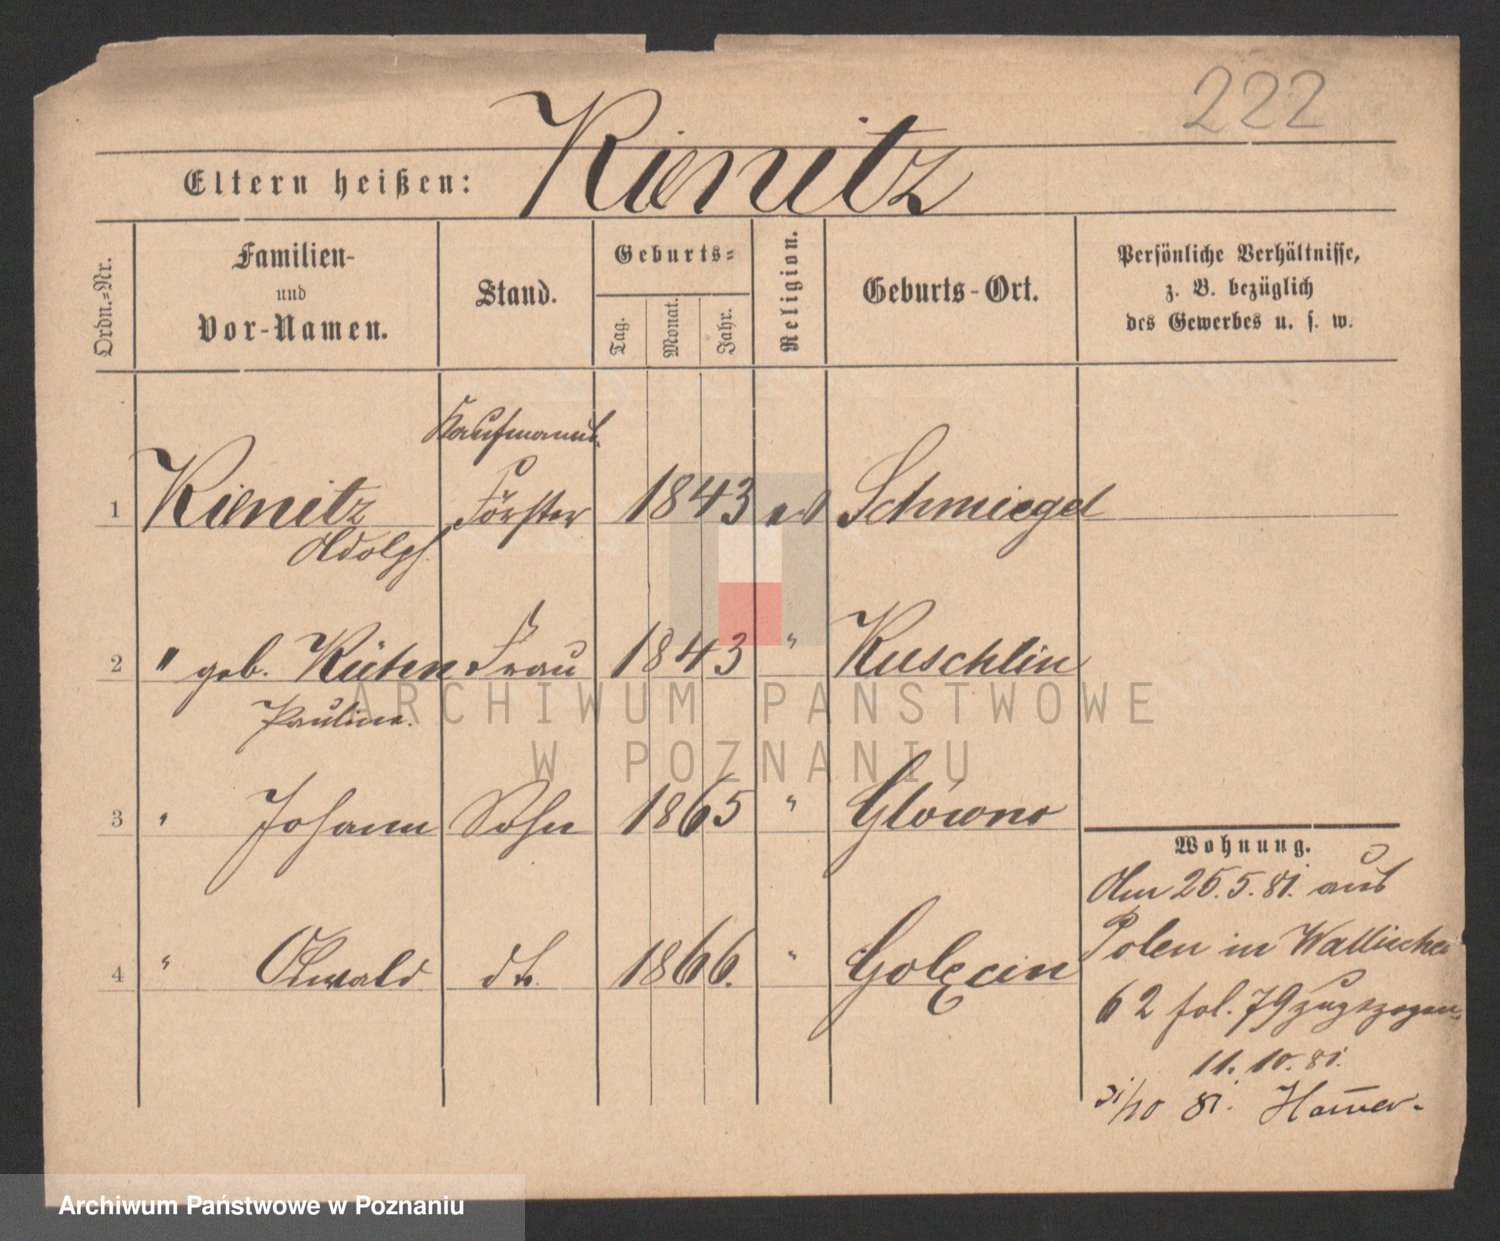 222
Eltern heißen: Kienitz
Ordn.=Nr.
Familien-
und
Vor-Namen.
Stand.
Geburts=
Tag.
Monat.
Jahr.
Religion.
Geburts-Ort.
Persönliche Verhältnisse,
z. B. bezüglich
des Gewerbes u. s. w.
Kaufmann
1 Kienitz Förster 1843 Schmiegel
Adolph
2 " geb. Kühn Frau 1843 " Kuschlin
Pauline.
3 " Johann Sohn 1865 " Główno
4 " Oswald 1866. " Golęcin
Wohnung.
Am 25.5.81. aus
Polen in Wallischei
62 fol. 79 zugezogen
11. 10. 81.
31/10 81.
ARCHIWUM PAŃSTWOWE
W POZNANIU
Archiwum Państwowe w Poznaniu